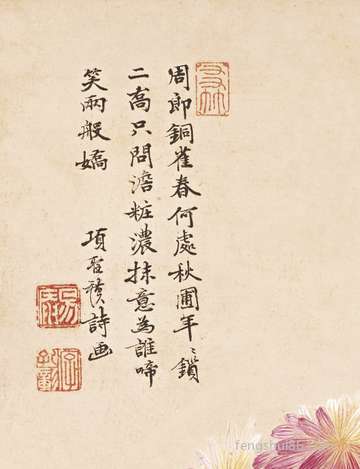 周郎銅雀春何處秋圃年〻鎖
二喬只問澹粧濃抹意為誰啼
笑兩般嬌
項聖謨詩画